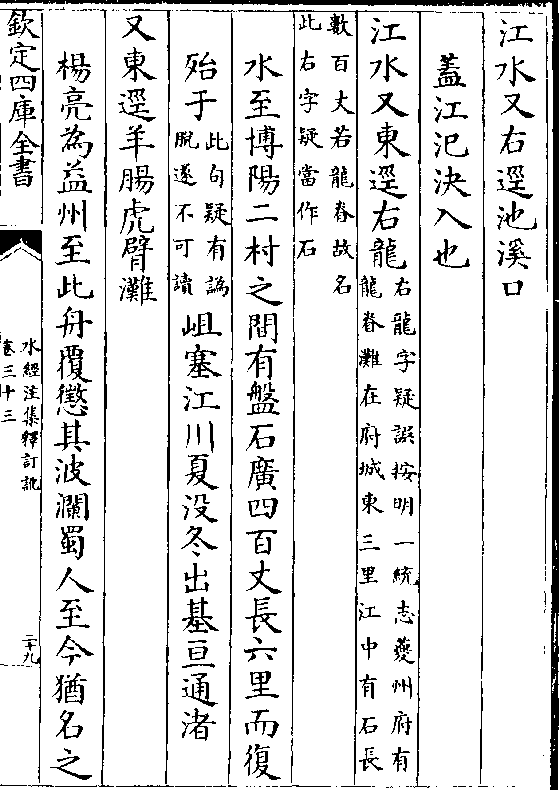 江水又右逕池溪口
蓋江汜決入也
江水又東逕右龍右龍字疑誤按明一統志夔州府有龍脊灘在府城東三里江中有石長
數百丈若龍脊故名此右字疑當作石
水至博陽二村之間有盤石廣四百丈長六里而復
殆于此句疑有譌脫遂不可讀岨塞江川夏没冬出基亘通渚
又東逕羊腸虎臂灘
楊亮為益州至此舟覆懲其波瀾蜀人至今猶名之
欽定四庫全書
水經注集釋訂訛
卷三十三
二十九